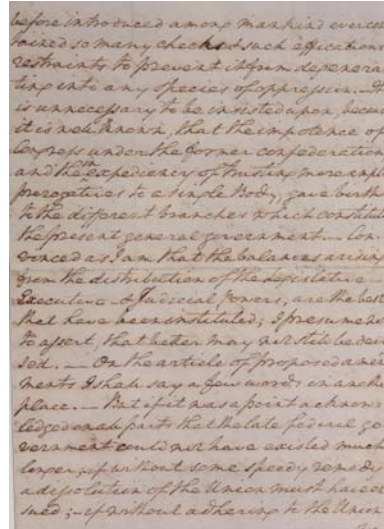 before introduced among mankind ever con
tained so many checks & such efficatious
restraints to prevent it from degenera
ting into any species of oppression. It
is unnecessary to be insisted upon, becau
it is well known, that the impotence of
Congress under the former confederation
and the inexpediency of trusting more ampl
prerogatives to a single Body, gave birth
to the different branches which constitut
the present general government. Con
vinced as I am that the balances arising
from the distribution of the Legislative
Executive & Judicial powers, are the best
that have been instituted; I presume no
to assert, that better may not still be devi
sed. — On the article of proposed amen
ments I shall say a few words in anothe
place. — But if it was a point acknow
ledged on all parts that the late federal go
vernment could not have existed much
longer; if without some speedy remedy
a dissolution of the Union must have en
sued; — if without adhering to the Union